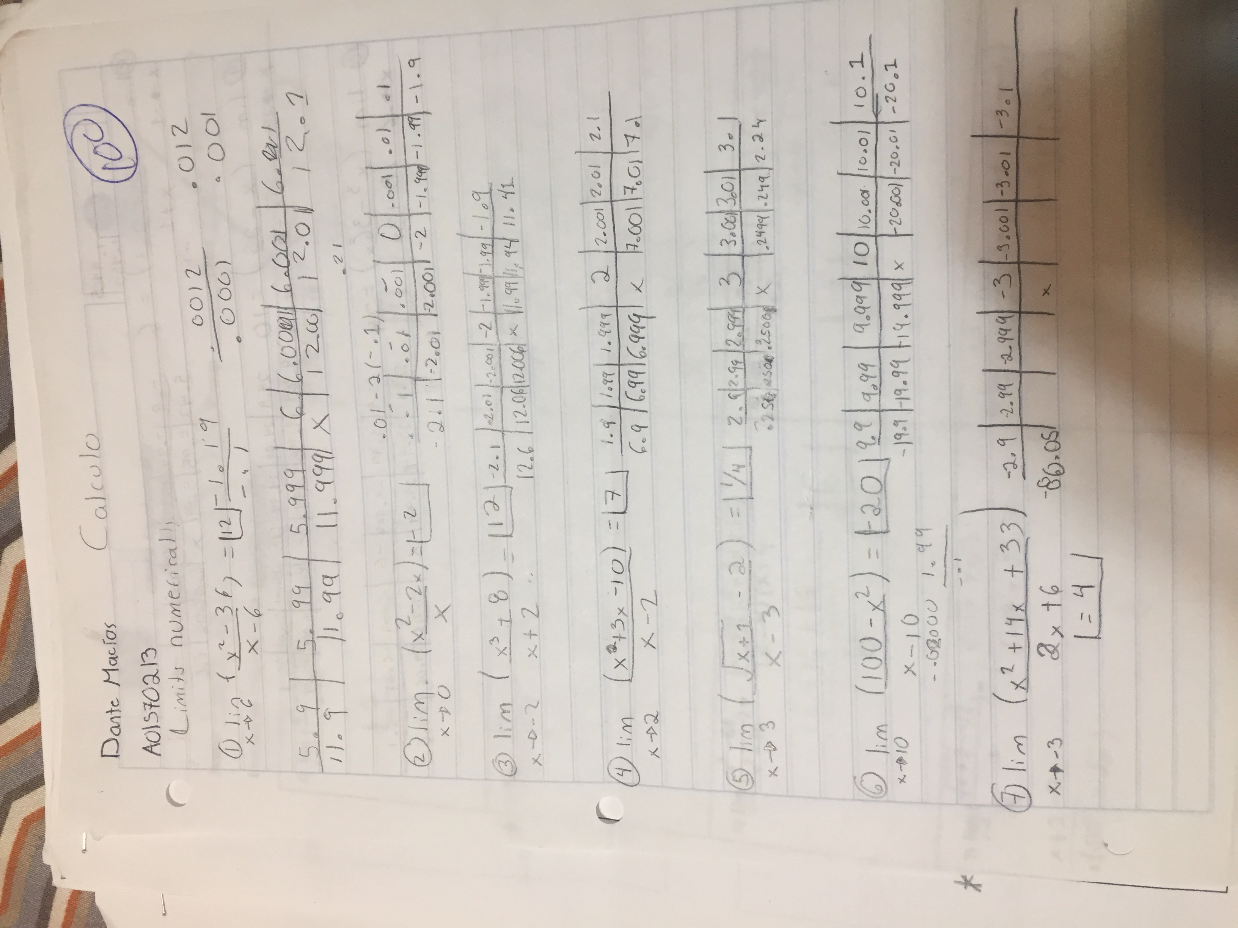 Dante Macías Calculo 100
A01570213
Limits numerically
.0012 .012
.0001 .001
① lim (x² - 36) = 12 -1.19
x→6 x-6 -.1
5.9 | 5.99 | 5.999 | 6 | 6.0001 | 6.001 |
11.9 | 11.99 | 11.999 | X | 12.00 | 12.01 | 12.1
.21
.01-2(-.1)
② lim (x²-2x) = -2 -.1 | -.01 | -.001 | 0 | .001 | .01 | .1
x→0 x -2.1 | -2.01 | -2.001 | -2 | -1.999 | -1.99 | -1.9
③ lim (x³ + 8) = 12 -2.1 | -2.01 | -2.001 | -2 | -1.999 | -1.99 | -1.9
x→-2 x+2 12.6 | 12.06 | 12.006 | x | 11.99 | 11.94 | 11.41
④ lim (x²+3x-10) = 7 1.9 | 1.99 | 1.999 | 2 | 2.001 | 2.01 | 2.1
x→2 x-2 6.9 | 6.99 | 6.999 | x | 7.001 | 7.01 | 7.1
⑤ lim (√x+1 - 2) = 1/4 2.9 | 2.99 | 2.999 | 3 | 3.001 | 3.01 | 3.1
x→3 x-3 .2516 | .2506 | .2500 | x | .2499 | .249 | 2.24
⑥ lim (100-x²) = -20 9.9 | 9.99 | 9.999 | 10 | 10.001 | 10.01 | 10.1
x→10 x-10 -19.9 | -19.99 | -19.999 | x | -20.001 | -20.01 | -20.1
1.99
-.1
* ⑦ lim (x² + 14x + 33) -2.9 | -2.99 | -2.999 | -3 | -3.001 | -3.01 | -3.1
x→-3 2x+6 -86.05 | x
= 4